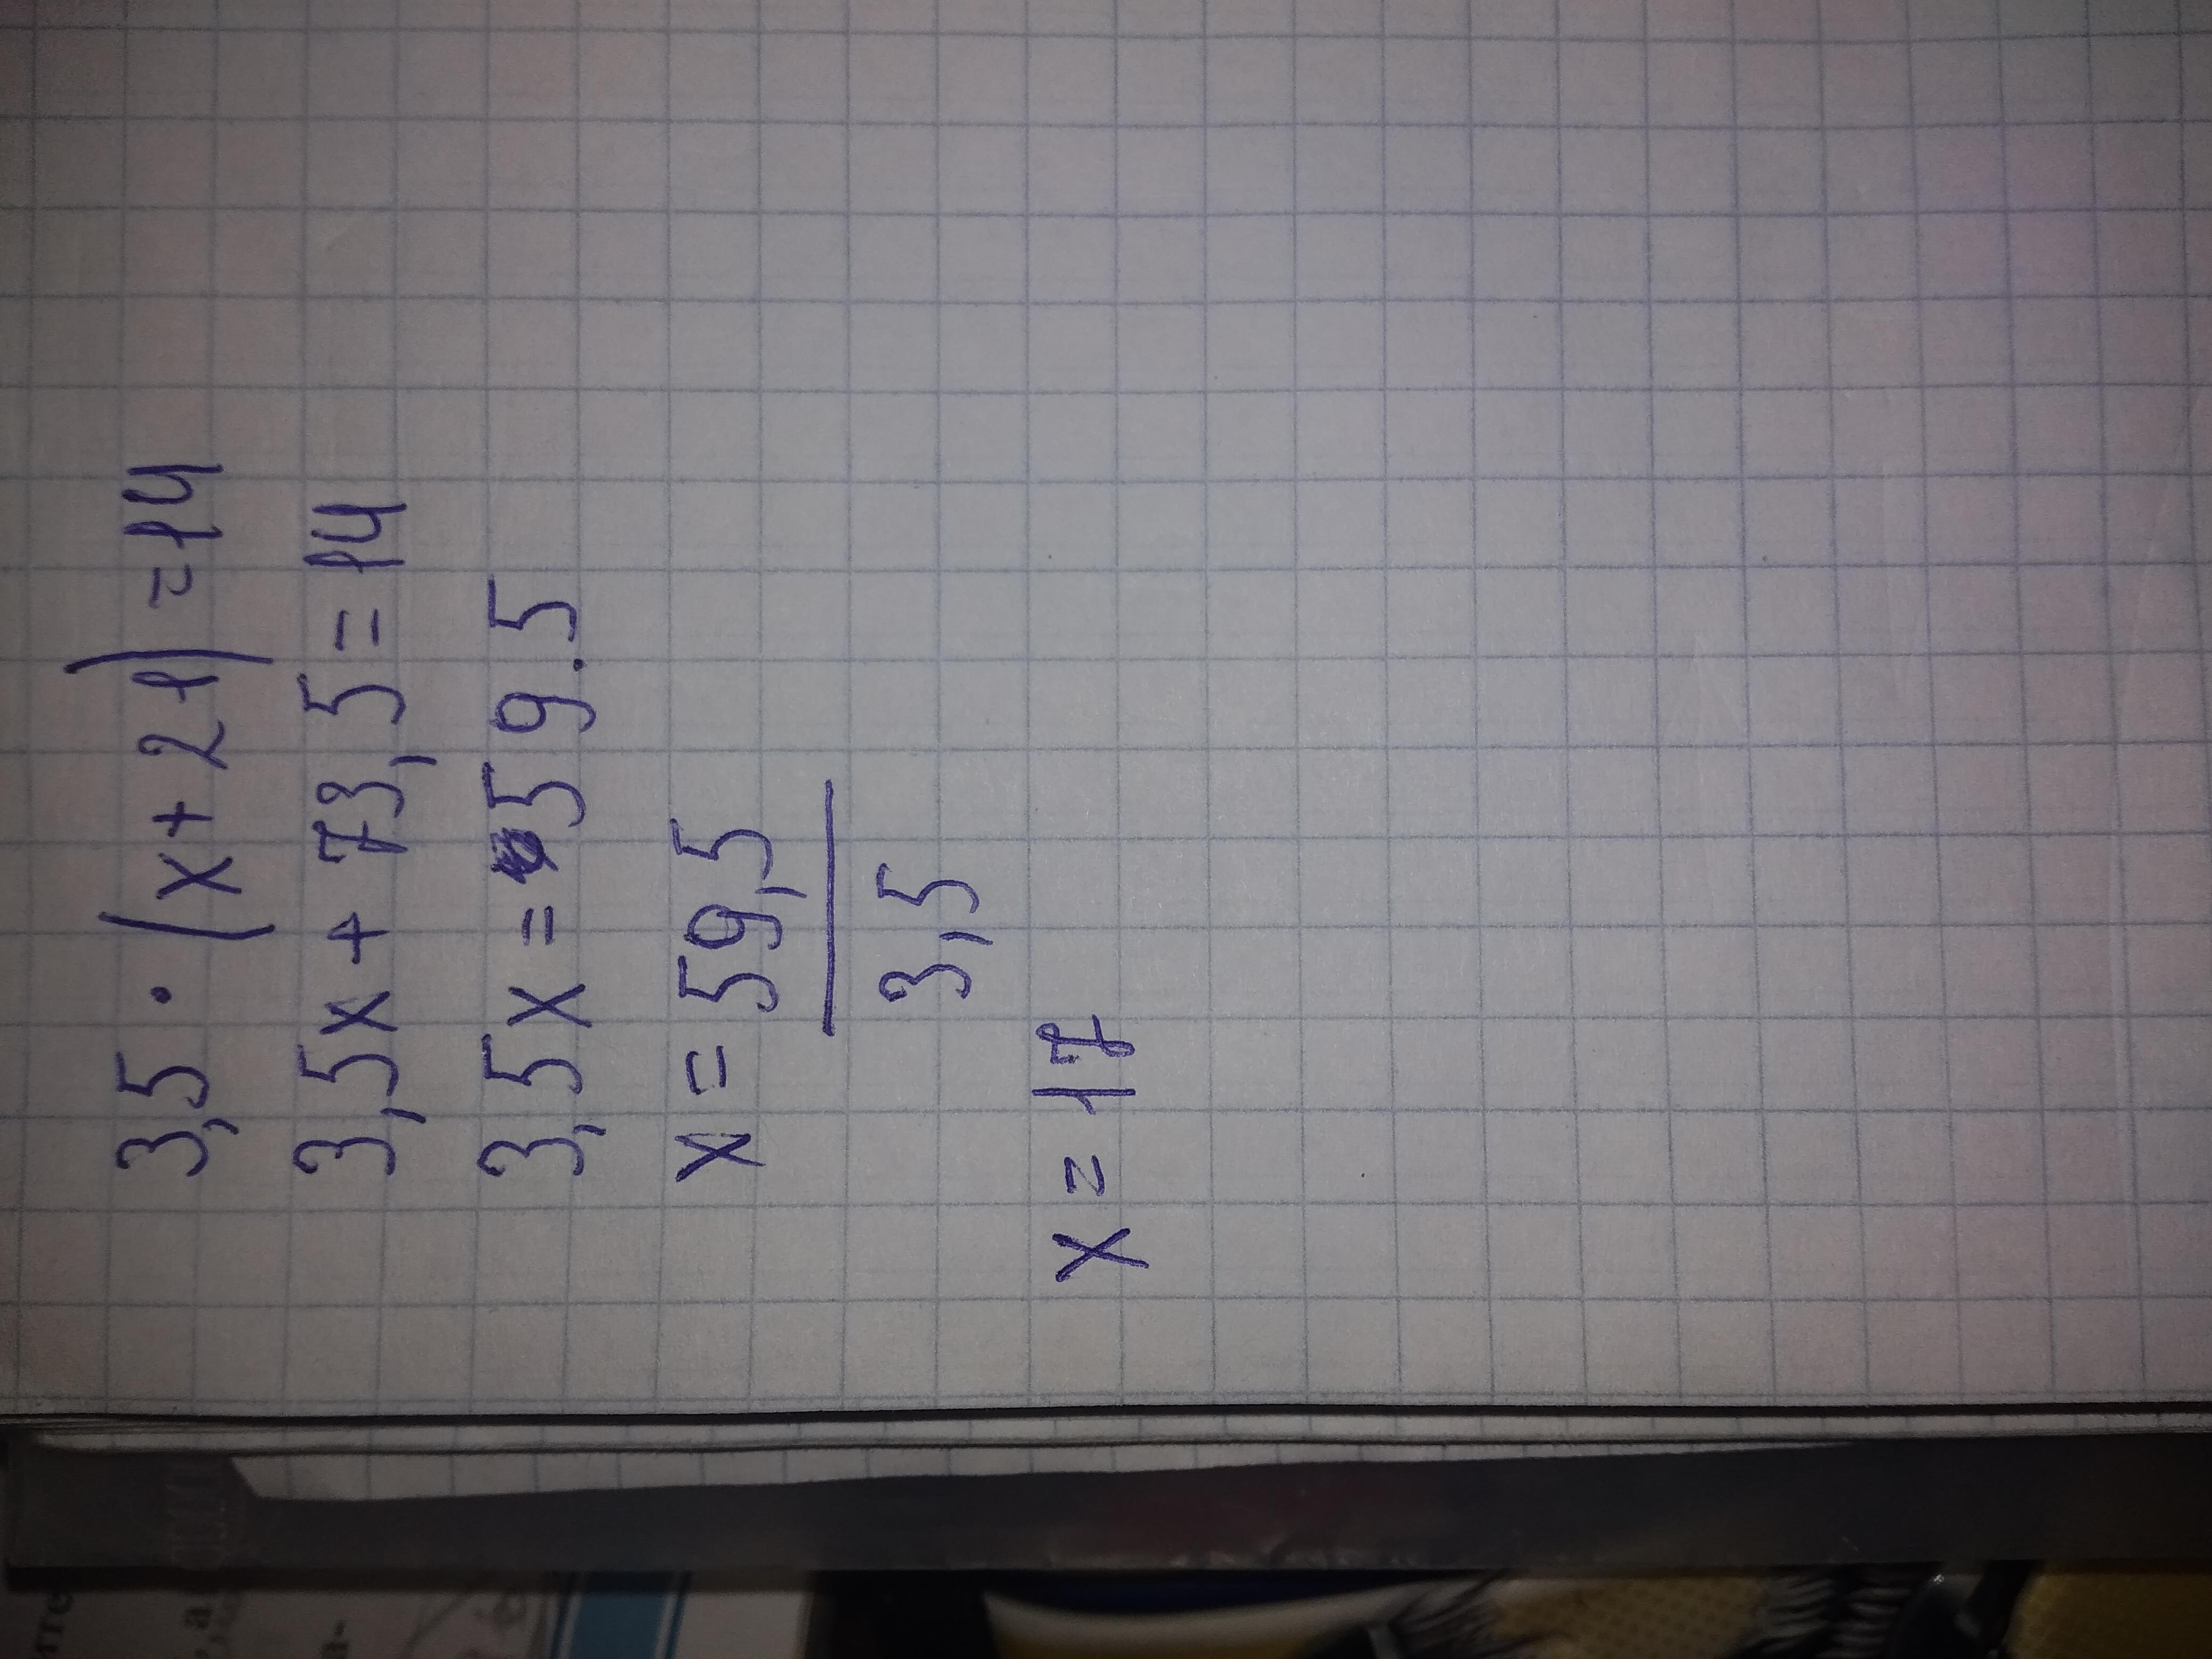 3,5 · (x + 21) = 14
3,5x + 73,5 = 14
3,5x = 59.5
x = 59,5
3,5
x = 17